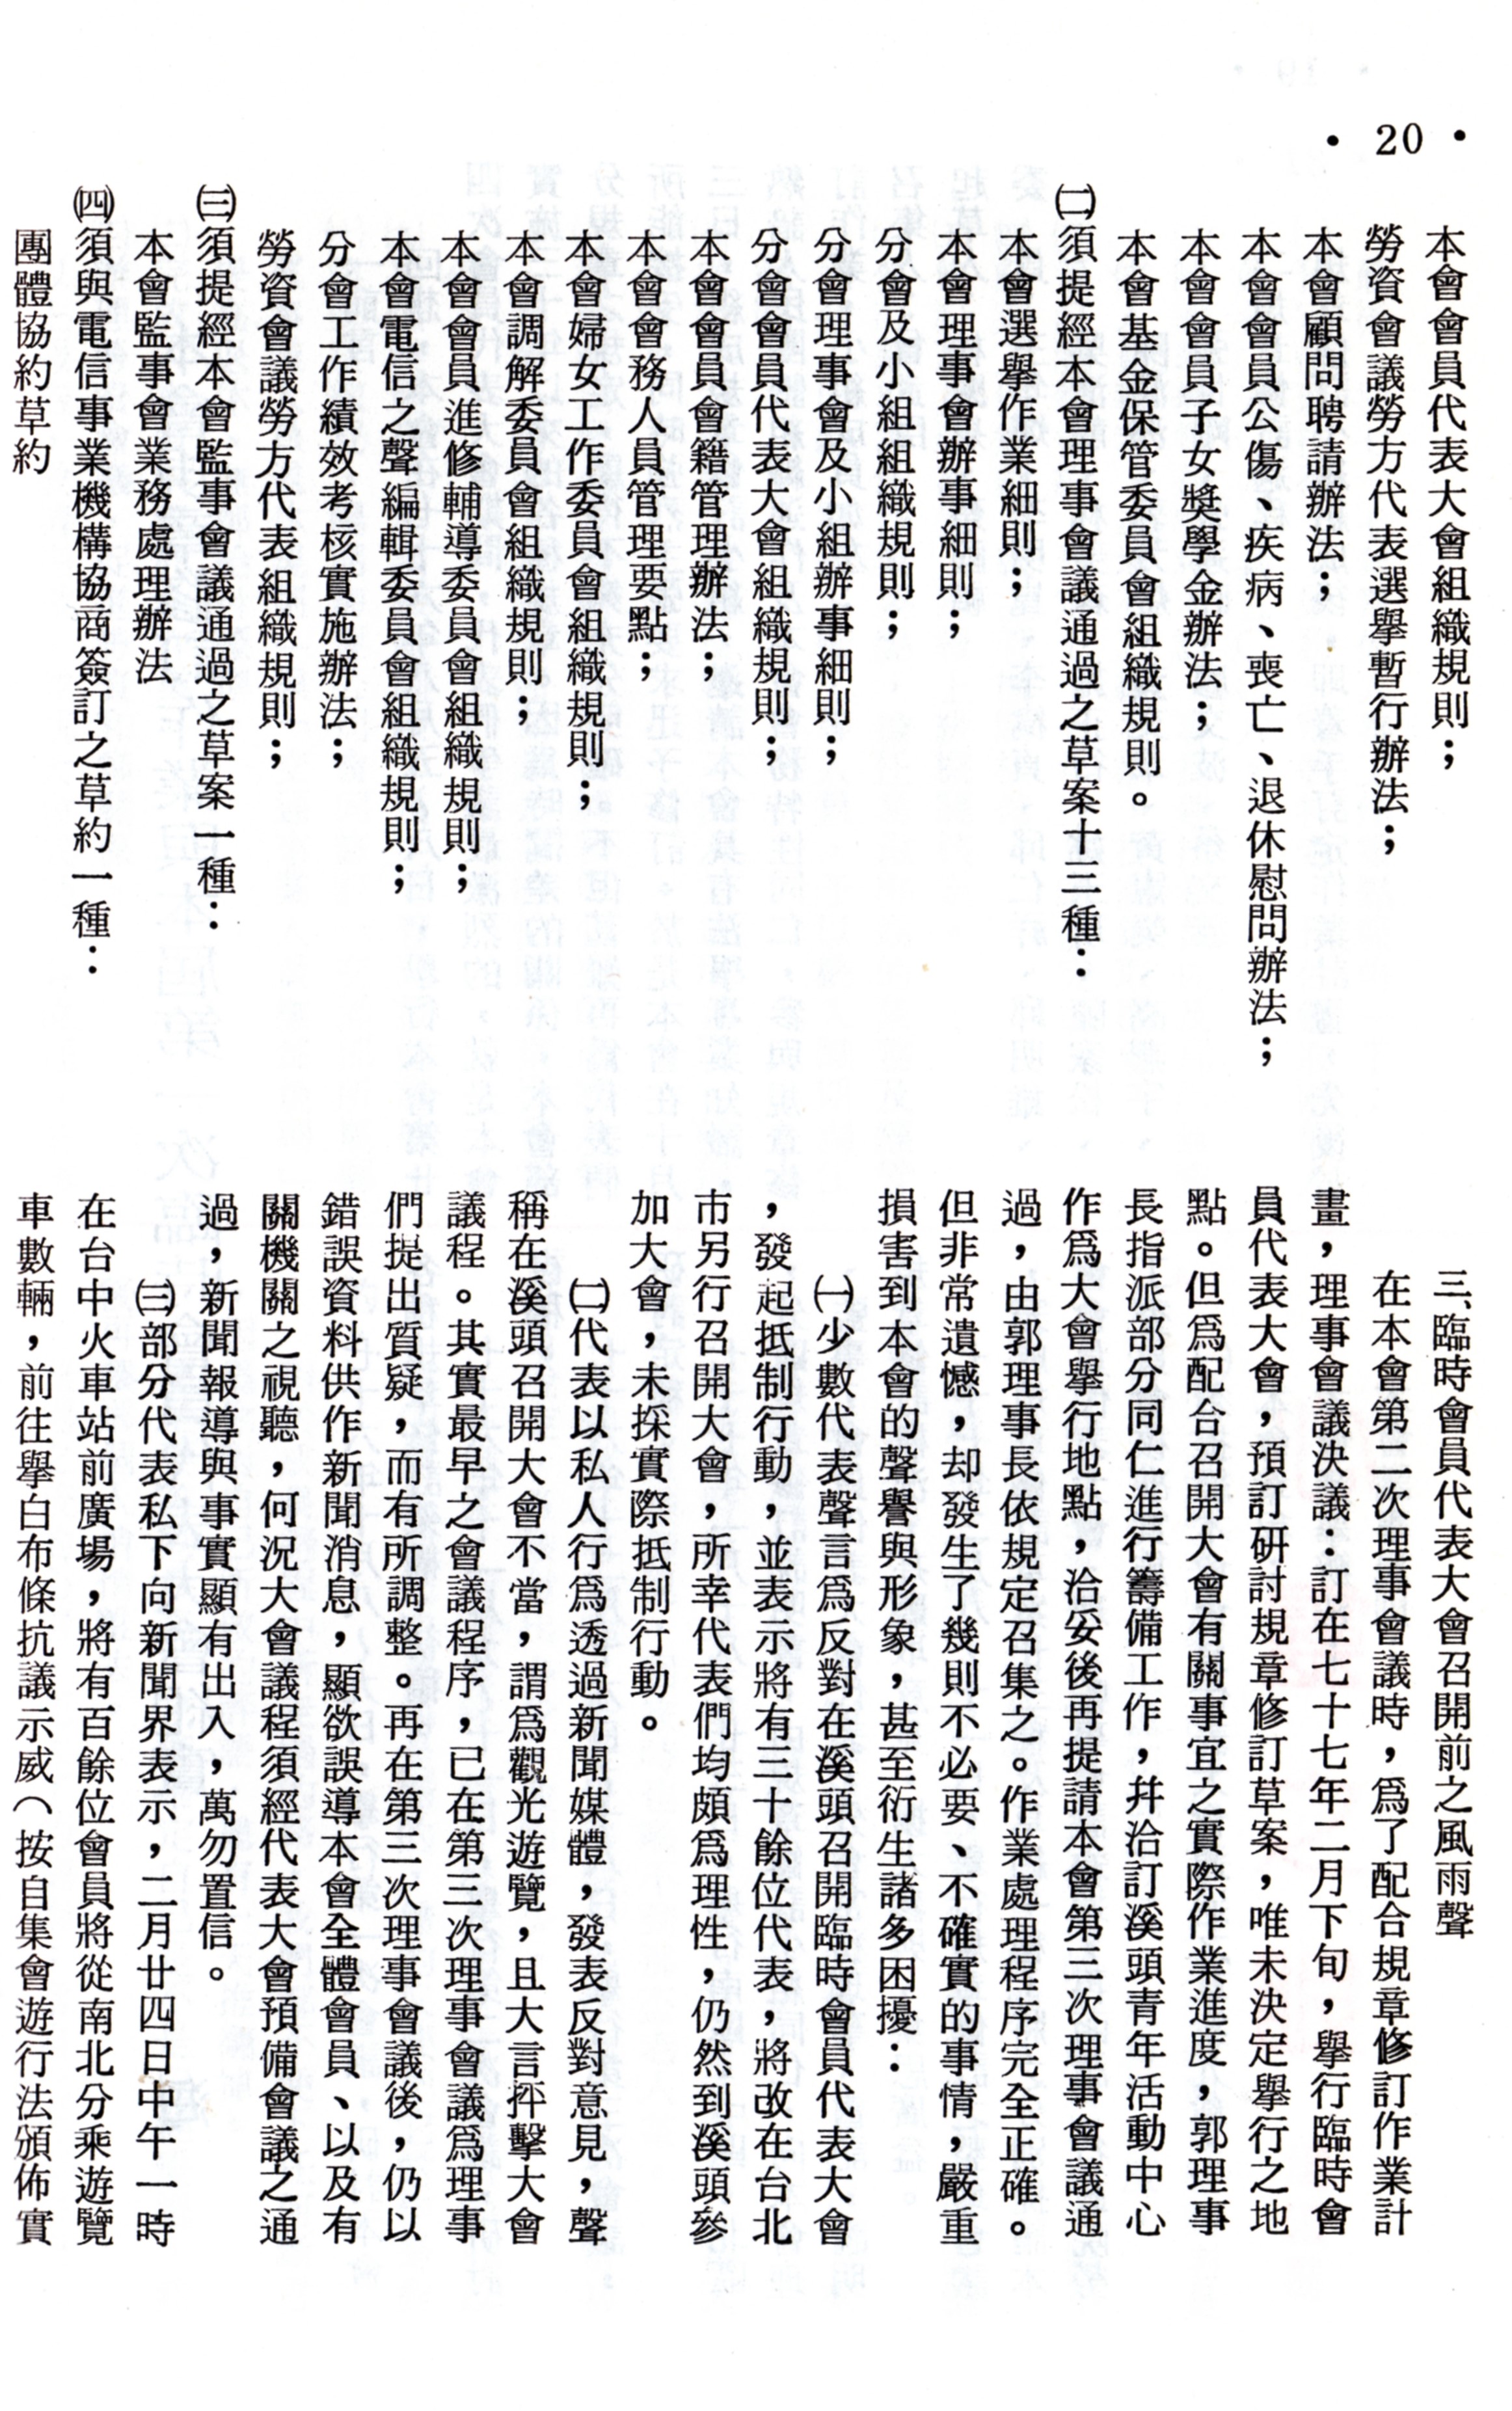 • 20 •
本會會員代表大會組織規則；
勞資會議勞方代表選舉暫行辦法；
本會顧問聘請辦法；
本會會員公傷、疾病、喪亡、退休慰問辦法；
本會會員子女獎學金辦法；
本會基金保管委員會組織規則。
㈡須提經本會理事會議通過之草案十三種：
本會選舉作業細則；
本會理事會辦事細則；
分會及小組組織規則；
分會理事會及小組辦事細則；
分會會員代表大會組織規則；
本會會員會籍管理辦法；
本會會務人員管理要點；
本會婦女工作委員會組織規則；
本會調解委員會組織規則；
本會會員進修輔導委員會組織規則；
本會電信之聲編輯委員會組織規則；
分會工作績效考核實施辦法；
勞資會議勞方代表組織規則；
㈢須提經本會監事會議通過之草案一種：
本會監事會業務處理辦法
㈣須與電信事業機構協商簽訂之草約一種：
團體協約草約
三、臨時會員代表大會召開前之風雨聲
在本會第二次理事會議時，爲了配合規章修訂作業計
畫，理事會議決議：訂在七十七年二月下旬，舉行臨時會
員代表大會，預訂研討規章修訂草案，唯未決定舉行之地
點。但爲配合召開大會有關事宜之實際作業進度，郭理事
長指派部分同仁進行籌備工作，幷洽訂溪頭青年活動中心
作爲大會舉行地點，洽妥後再提請本會第三次理事會議通
過，由郭理事長依規定召集之。作業處理程序完全正確。
但非常遺憾，却發生了幾則不必要、不確實的事情，嚴重
損害到本會的聲譽與形象，甚至衍生諸多困擾：
㈠少數代表聲言爲反對在溪頭召開臨時會員代表大會
，發起抵制行動，並表示將有三十餘位代表，將改在台北
市另行召開大會，所幸代表們均頗爲理性，仍然到溪頭參
加大會，未採實際抵制行動。
㈡代表以私人行爲透過新聞媒體，發表反對意見，聲
稱在溪頭召開大會不當，謂爲觀光遊覽，且大言抨擊大會
議程。其實最早之會議程序，已在第三次理事會議爲理事
們提出質疑，而有所調整。再在第三次理事會議後，仍以
錯誤資料供作新聞消息，顯欲誤導本會全體會員、以及有
關機關之視聽，何況大會議程須經代表大會預備會議之通
過，新聞報導與事實顯有出入，萬勿置信。
㈢部分代表私下向新聞界表示，二月廿四日中午一時
在台中火車站前廣場，將有百餘位會員將從南北分乘遊覽
車數輛，前往舉白布條抗議示威（按自集會遊行法頒佈實